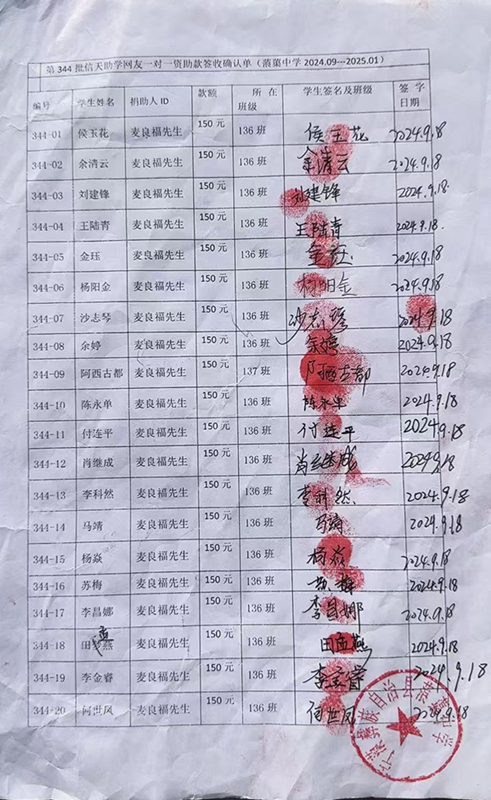 第 344 批信天助学网友一对一资助款签收确认单（蒗蕖中学 2024.09---2025.01）
编号 学生姓名 捐助人 ID 款额 所在班级 学生签名及班级 签字日期
344-01 侯玉花 麦良福先生 150 元 136 班 侯玉花 2024.9.18
344-02 余清云 麦良福先生 150 元 136 班 余清云 2024.9.18
344-03 刘建锋 麦良福先生 150 元 136 班 刘建锋 2024.9.18
344-04 王陆青 麦良福先生 150 元 136 班 王陆青 2024.9.18.
344-05 金珏 麦良福先生 150 元 136 班 金珏 2024.9.18
344-06 杨阳金 麦良福先生 150 元 136 班 杨阳金 2024.9.18
344-07 沙志琴 麦良福先生 150 元 136 班 沙志琴 2024.9.18
344-08 余婷 麦良福先生 150 元 136 班 余婷 2024.9.18
344-09 阿西古都 麦良福先生 150 元 137 班 阿西古都 2024.9.18
344-10 陈永单 麦良福先生 150 元 136 班 陈永单 2024.9.18
344-11 付连平 麦良福先生 150 元 136 班 付连平 2024.9.18
344-12 肖继成 麦良福先生 150 元 136 班 肖继成 2024.9.18
344-13 李科然 麦良福先生 150 元 136 班 李科然 2024.9.18
344-14 马靖 麦良福先生 150 元 136 班 马靖 2024.9.18
344-15 杨焱 麦良福先生 150 元 136 班 杨焱 2024.9.18
344-16 苏梅 麦良福先生 150 元 136 班 苏梅 2024.9.18
344-17 李昌娜 麦良福先生 150 元 136 班 李昌娜 2024.9.18
344-18 田孟燕 麦良福先生 150 元 136 班 田孟燕 2024.9.18
344-19 李金睿 麦良福先生 150 元 136 班 李金睿 2024.9.18
344-20 何世凤 麦良福先生 150 元 136 班 何世凤 2024.9.18
宁蒗彝族自治县蒗蕖中学